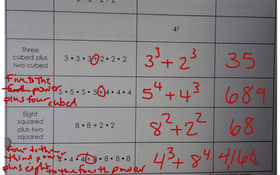 4³
Three
cubed plus
two cubed
3 • 3 • 3 + 2 • 2 • 2
3³ + 2³
35
Five to the
fourth power
plus four
cubed
5 • 5 • 5 • 5 + 4 • 4 • 4
5⁴ + 4³
689
Eight
squared
plus two
squared
8 • 8 + 2 • 2
8² + 2²
68
four to the
third power
plus eight to the fourth power
4 • 4 + 8 • 8 • 8 • 8
4³ + 8⁴
4160